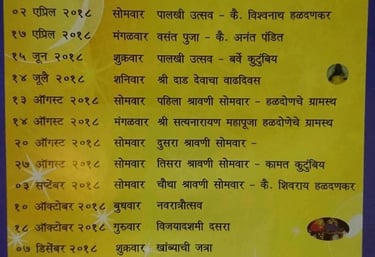 ०२ एप्रिल २०१८ सोमवार पालखी उत्सव - कै. विश्वनाथ हळदणकर
१७ एप्रिल २०१८ मंगळवार वसंत पुजा - कै. अनंत पंडित
१५ जून २०१८ शुक्रवार पालखी उत्सव - बर्वे कुटुंबिय
१४ जूलै २०१८ शनिवार श्री दाड देवाचा वाढदिवस
१३ ऑगस्ट २०१८ सोमवार पहिला श्रावणी सोमवार - हळदोणचे ग्रामस्थ
१४ ऑगस्ट २०१८ मंगळवार श्री सत्यनारायण महापूजा हळदोणेचे ग्रामस्थ
२० ऑगस्ट २०१८ सोमवार दुसरा श्रावणी सोमवार -
२७ ऑगस्ट २०१८ सोमवार तिसरा श्रावणी सोमवार - कामत कुटुंबिय
०३ सप्टेंबर २०१८ सोमवार चौथा श्रावणी सोमवार - कै. शिवराय हळदणकर
१० ऑक्टोबर २०१८ बुधवार नवरात्रौत्सव
१८ ऑक्टोबर २०१८ गुरुवार विजयादशमी दसरा
०७ डिसेंबर २०१८ शुक्रवार खांब्याची जत्रा